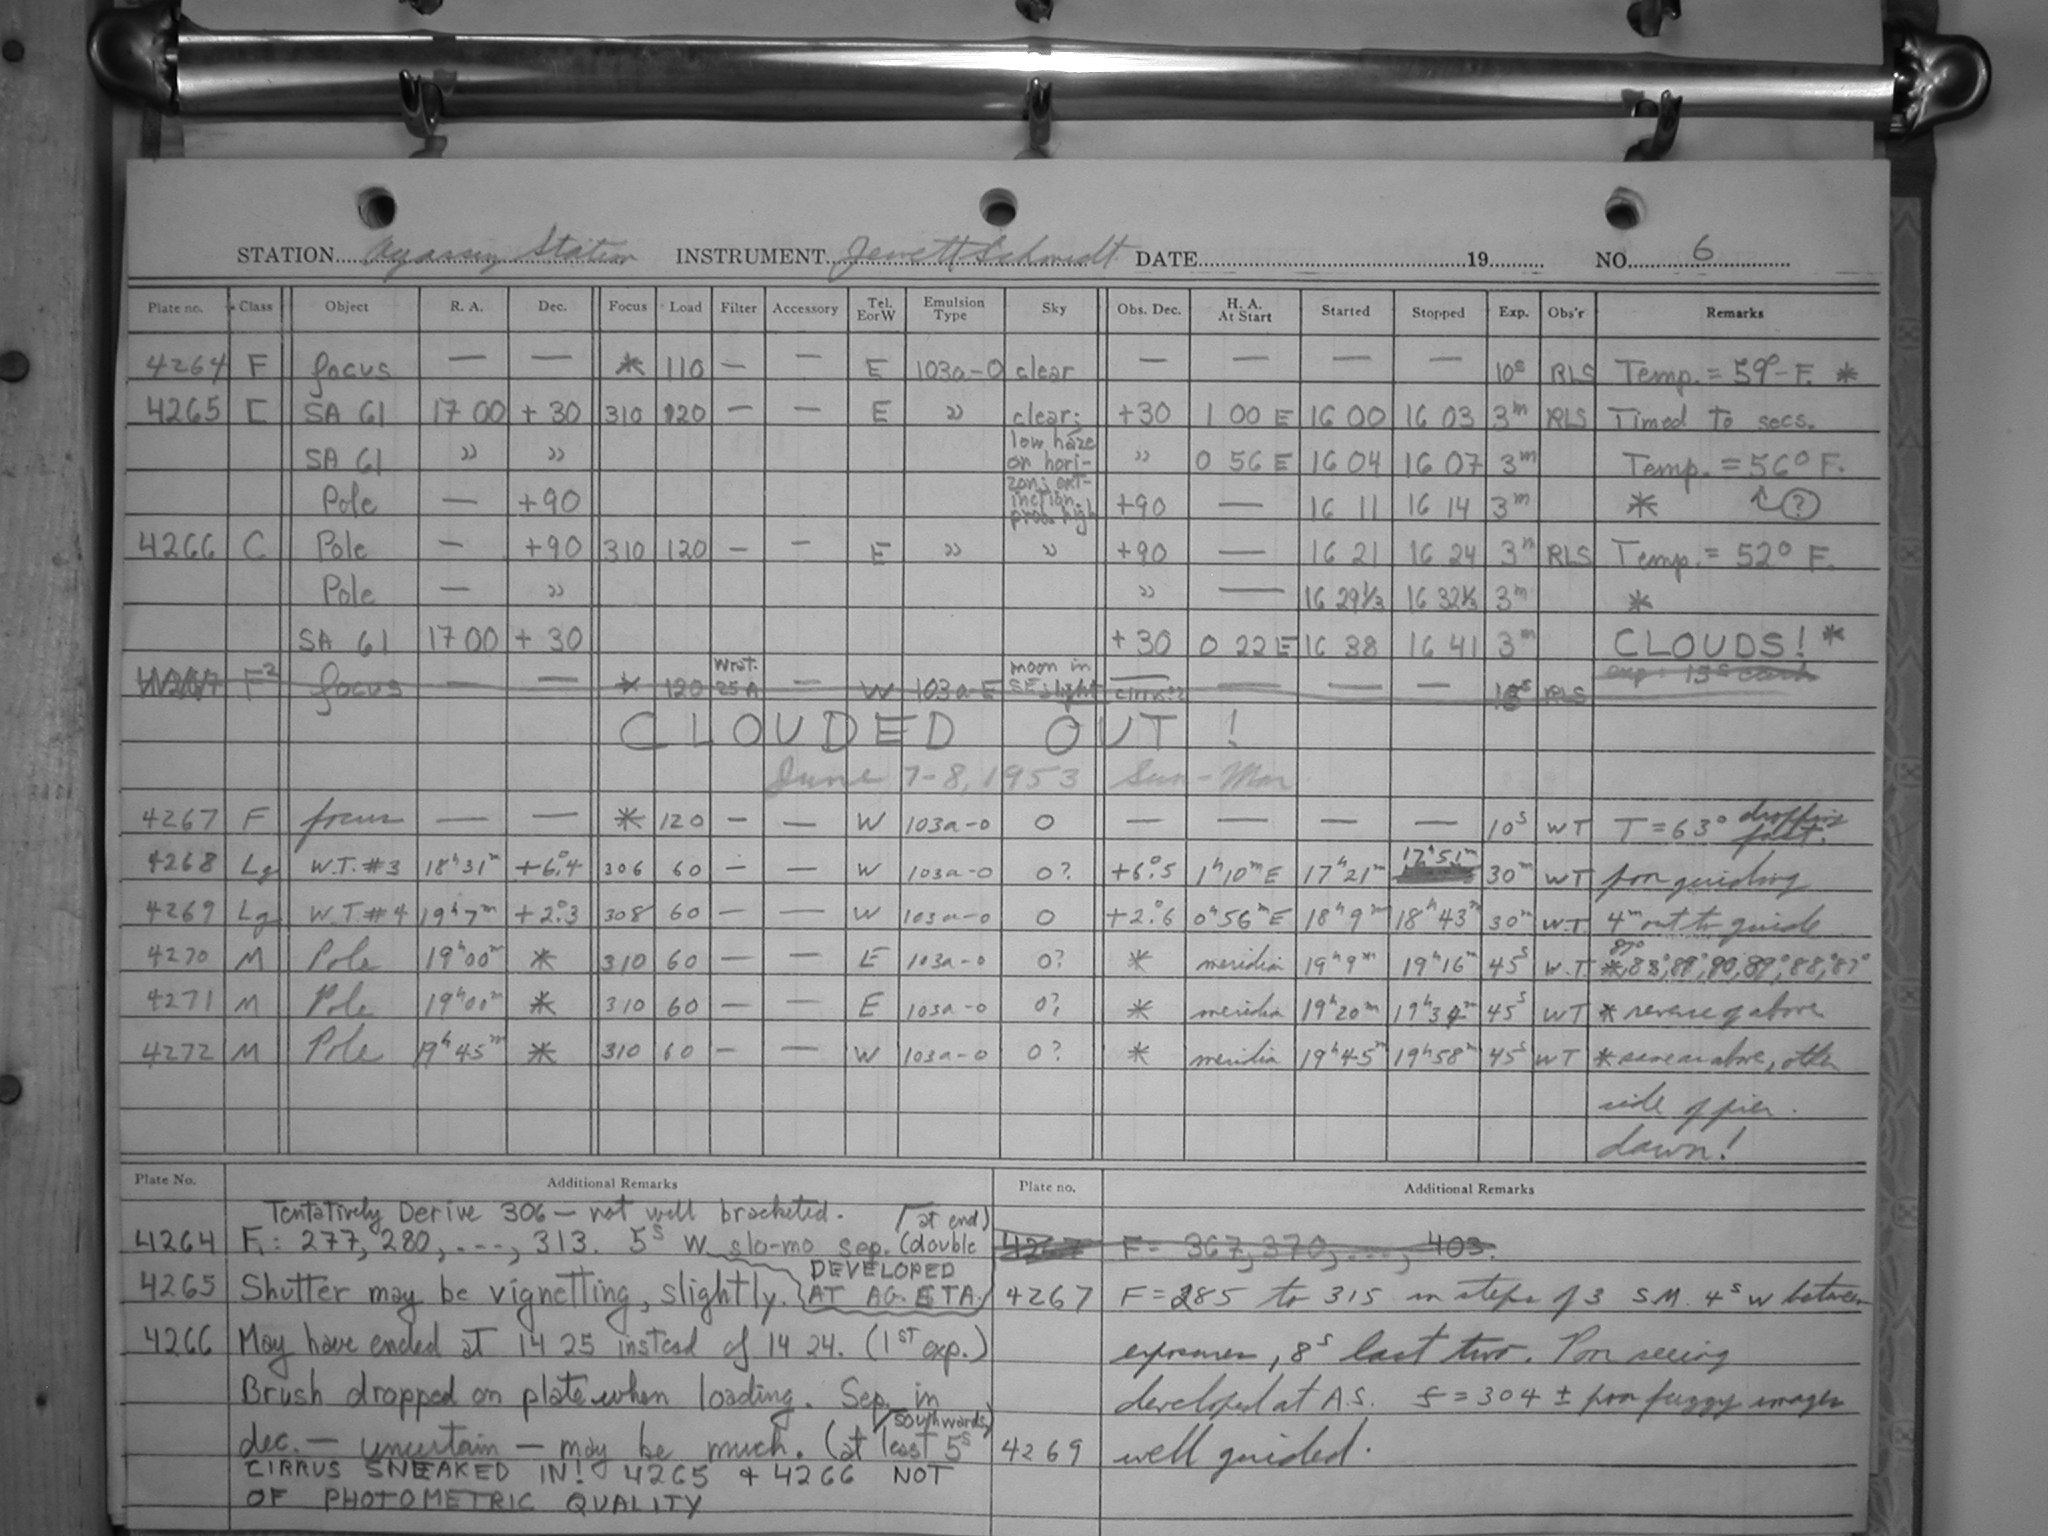 STATION Agassiz Station INSTRUMENT Jewett Schmidt DATE 19 NO. 6
Plate no. Class Object R. A. Dec. Focus Load Filter Accessory Tel. E or W Emulsion Type Sky Obs. Dec. H. A. At Start Started Stopped Exp. Obs'r Remarks
4264 F focus — — * 110 — — E 103a-O clear — — — — 10s RLS Temp. = 59° F. *
4265 C SA 61 17 00 + 30 310 120 — — E " clear; +30 1 00 E 16 00 16 03 3m RLS Timed to secs.
SA 61 " " low haze on hori- " 0 56 E 16 04 16 07 3m Temp. = 56° F.
Pole — +90 zon; ext- inction prob. high +90 — 16 11 16 14 3m * (?)
4266 C Pole — +90 310 120 — — E " " +90 — 16 21 16 24 3m RLS Temp. = 52° F.
Pole — " " — 16 29 1/3 16 32 1/3 3m *
SA 61 17 00 + 30 + 30 0 22 E 16 38 16 41 3m CLOUDS! *
4267 F2 focus — — * 120 Wrat. 25A — W 103a-E moon in SE; light cirrus? — — — RLS
CLOUDED OUT!
June 7-8, 1953 Sun-Mon
4267 F focus — — * 120 — — W 103a-O O — — — — 10s WT T = 63° dropping fast.
4268 Lg W.T. #3 18h31m +6°.4 306 60 — — W 103a-O O? +6°.5 1h10mE 17h21m 17h51m 30m WT poor guiding
4269 Lg W.T. #4 19h7m +2°.3 308 60 — — W 103a-O O +2°.6 0h56mE 18h9m 18h43m 30m W.T. 4m out to guide
4270 M Pole 19h00m * 310 60 — — E 103a-O O? * meridian 19h9m 19h16m 45s W.T. 87° *, 88°, 89°, 90, 89°, 88°, 87°
4271 M Pole 19h00m * 310 60 — — E 103a-O O? * meridian 19h20m 19h34m 45s WT * reverse of above
4272 M Pole 19h45m * 310 60 — — W 103a-O O? * meridian 19h45m 19h58m 45s WT * same as above, other
side of pier.
dawn!
Plate No. Additional Remarks
Tentatively Derive 306 — not well bracketed.
4264 F.: 277, 280, ..., 313. 5s W slo-mo sep. (double at end)
4265 Shutter may be vignetting, slightly. DEVELOPED AT AG. ETA.
4266 May have ended at 14 25 instead of 14 24. (1ST exp.)
Brush dropped on plate when loading. Sep. in
dec. — uncertain — may be much. (at least 5s southwards)
CIRRUS SNEAKED IN! 4265 + 4266 NOT
OF PHOTOMETRIC QUALITY
Plate no. Additional Remarks
4267 F = 367, 370, ..., 403.
4267 F = 285 to 315 in steps of 3 S.M. 4s W between
exposures, 8s last two. Poor seeing
developed at A.S. f = 304 ± poor fuzzy images
4269 well guided.